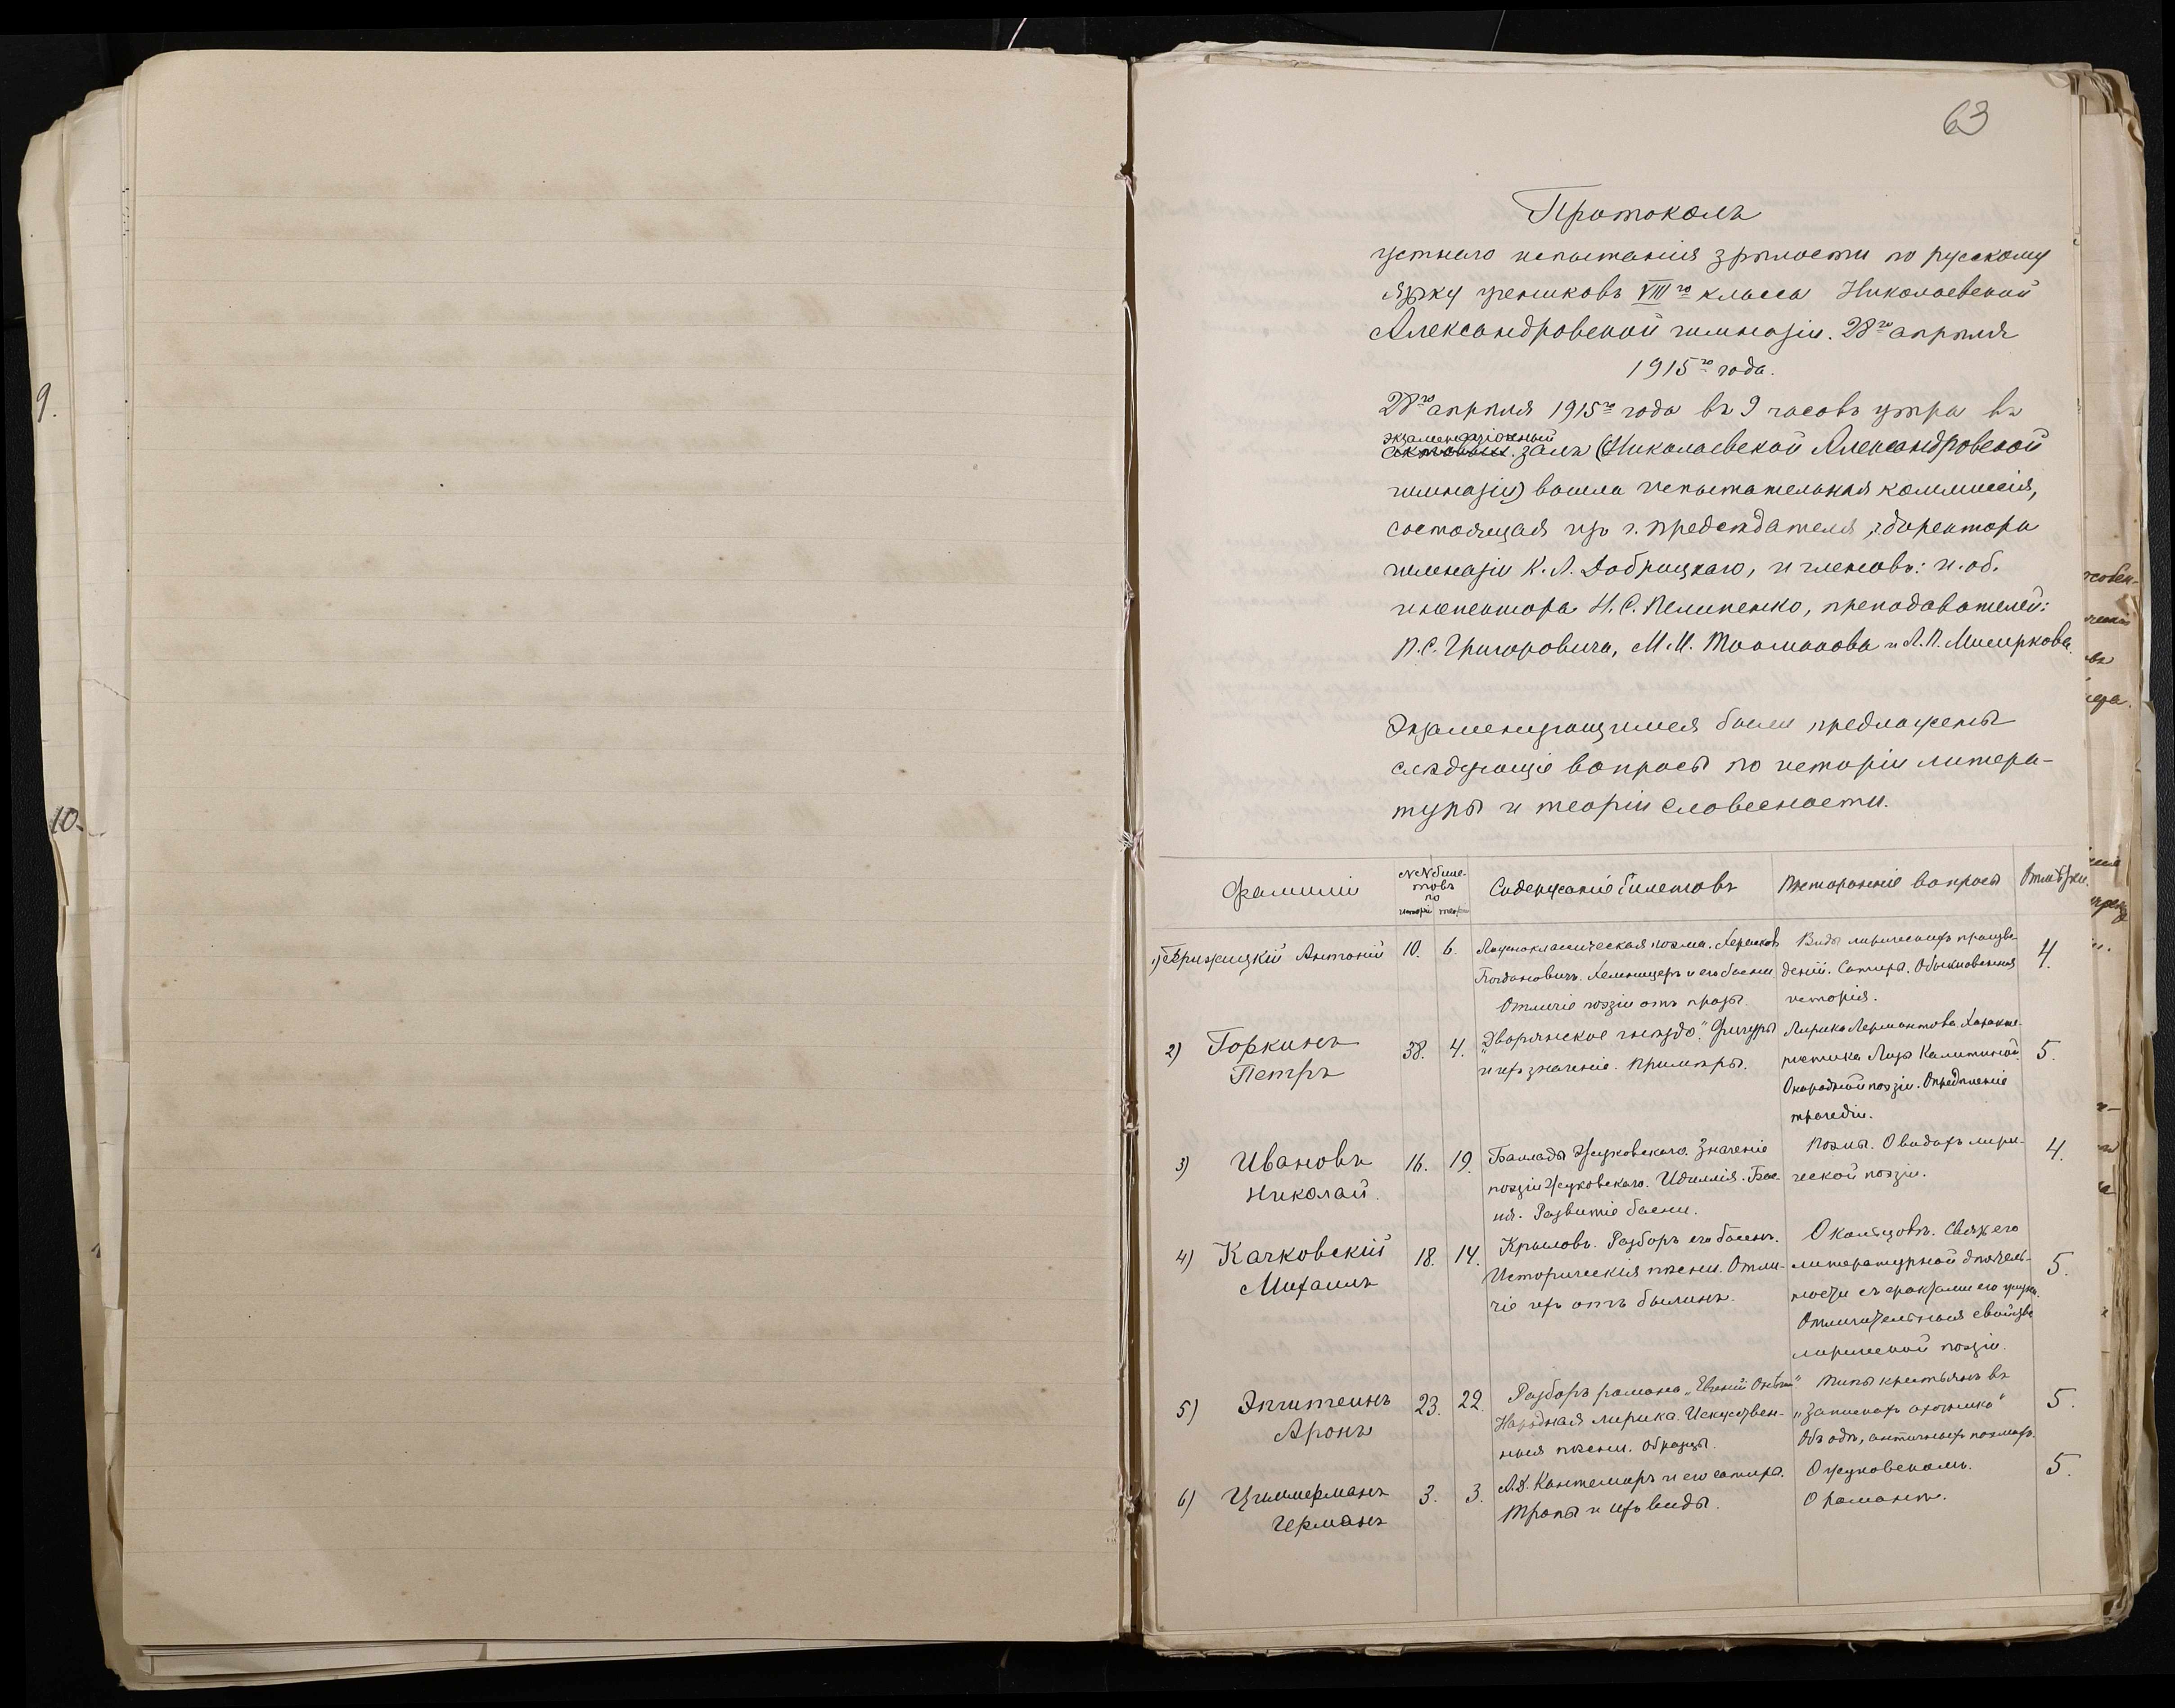 9.
10.
63
Протоколъ
устнаго испытанія зрѣлости по русскому
языку учениковъ VIII го класса Николаевской
Александровской гимназіи. 28го апрѣля
1915го года.
28го апрѣля 1915го года въ 9 часовъ утра въ
экзаменаціонный
залъ (Николаевской Александровской
гимназіи) вошла испытательная коммиссія,
состоящая изъ г. предсѣдателя, директора
гимназіи К. Л. Добрицкаго, и членовъ: и. об.
инспектора Н. С. Пелипенко, преподавателей:
П. С. Григоровича, М. И. и А. П. Мисиркова.
Экзаменующимся были предложены
слѣдующіе вопросы по исторіи литера-
туры и теоріи словесности.
Фамиліи №№ биле- Содержаніе билетовъ Посторонніе вопросы Отмѣтки.
товъ
по
исторіи теоріи
1) Антоній 10. 6. Ложноклассическая поэма. Херасковъ Виды лирическихъ произве-
Богдановичъ. Хемницеръ и его басни деній. Сатира. Обыкновенная 4.
Отличіе поэзіи отъ прозы. исторія.
2) Горкинъ 38. 4. „Дворянское гнѣздо." Фигуры Лирика Лермонтова. Характе-
Петръ и ихъ значеніе. Примѣры. ристика Лизы Калитиной. 5.
О народной поэзіи. Опредѣленіе
трагедіи.
3) Ивановъ 16. 19. Баллады Жуковскаго. Значеніе Поэмы. О видахъ лири- 4.
Николай. поэзіи Жуковскаго. Идиллія. Бас- ческой поэзіи.
ня. Развитіе басни.
4) Качковскій 18. 14. Крыловъ. Разборъ его басенъ. О Кольцовѣ. Связь его
Михаилъ Историческія пѣсни. Отли- литературной дѣятель- 5.
чіе ихъ отъ былинъ. ности съ фактами его жизни.
Отличительныя свойства
лирической поэзіи.
5) Эпштейнъ 23. 22. Разборъ романа „Евгеній Онѣгинъ" Типы крестьянъ въ
Аронъ Народная лирика. Искусствен- „Запискахъ охотника" 5.
ныя пѣсни. Образцы. Объ одѣ, античныхъ поэмахъ.
6) Циммерманъ 3. 3. А. Д. Кантемиръ и его сатира. О Жуковскомъ. 5.
Германъ Тропы и ихъ виды. О романѣ.